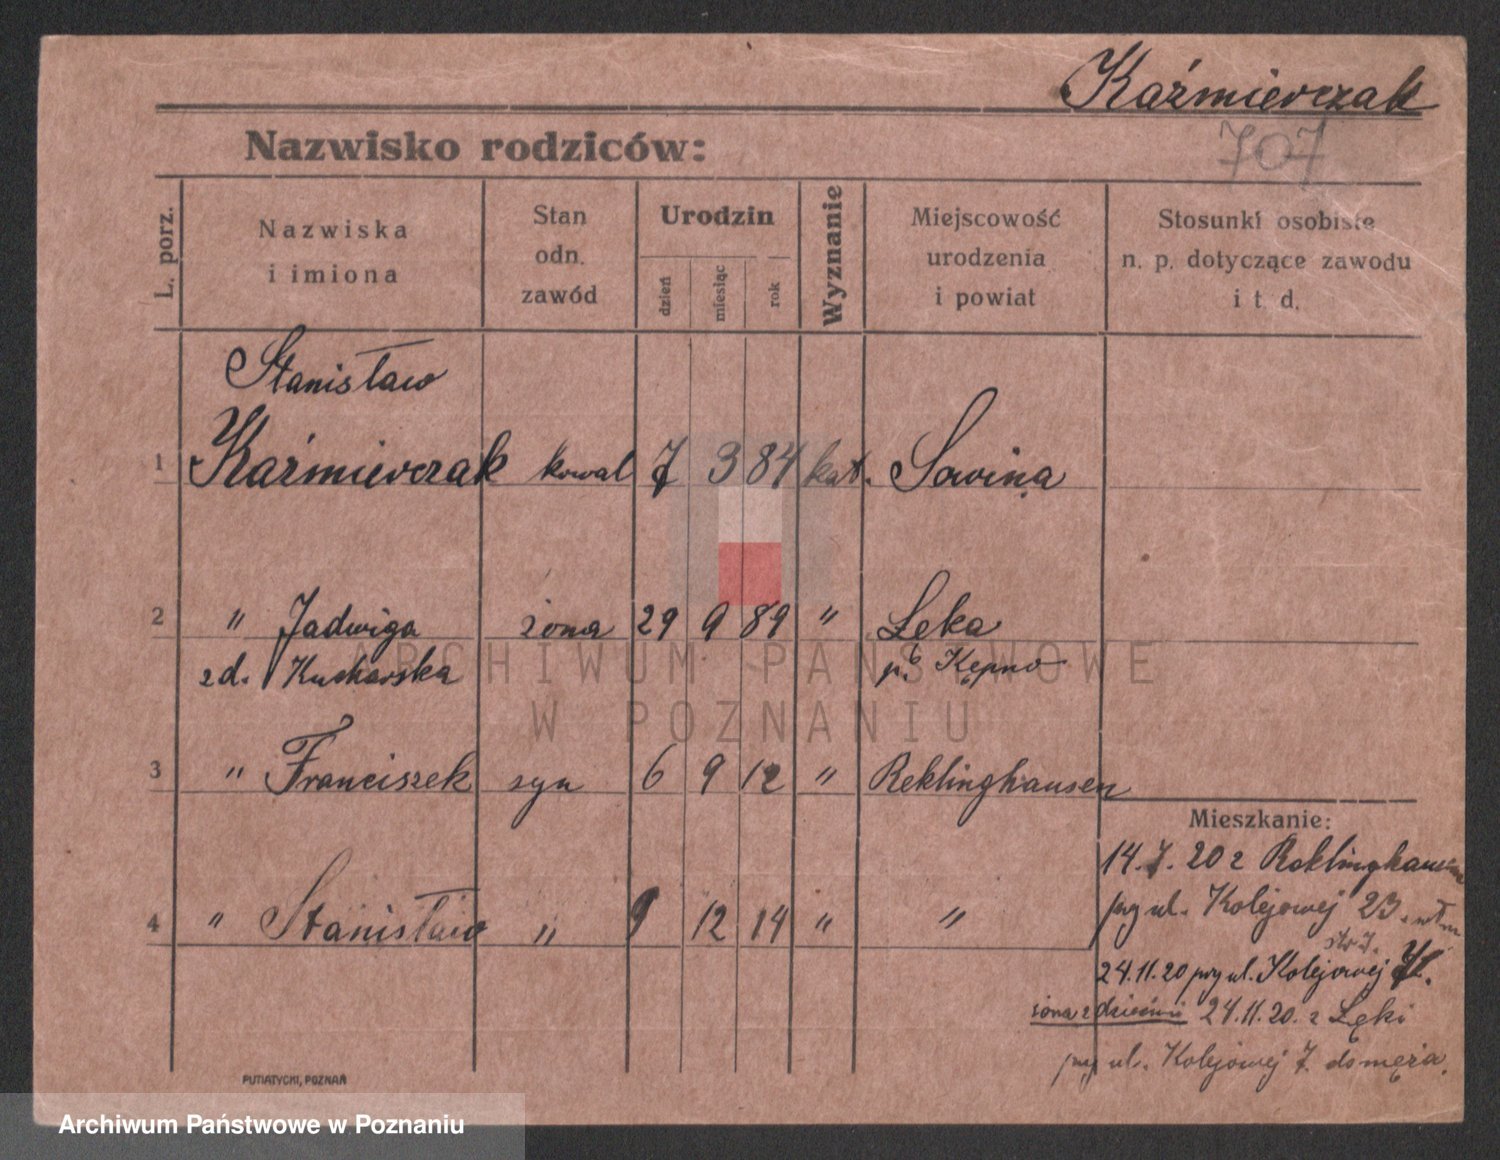 Kaźmierczak
707
Nazwisko rodziców:
L. porz.
Nazwiska
i imiona
Stan
odn.
zawód
Urodzin
dzień
miesiąc
rok
Wyznanie
Miejscowość
urodzenia
i powiat
Stosunki osobiste
n. p. dotyczące zawodu
i t. d.
Stanisław
1 Kaźmierczak kowal 7 3 84 kat. Sowina
2 " Jadwiga żona 29 9 89 " Łęka
zd. Kucharska p. Kępno
3 " Franciszek syn 6 9 12 " Reklinghausen
4 " Stanisław " 9 12 14 " "
Mieszkanie:
14.7.20 z Reklinghausen
przy ul. Kolejowej 23.
24.11.20 przy ul. Kolejowej
żona z dziećmi 24.11.20. z Łęki
przy ul. Kolejowej 7. do męża.
PUTIATYCKI, POZNAŃ
ARCHIWUM PAŃSTWOWE
W POZNANIU
Archiwum Państwowe w Poznaniu